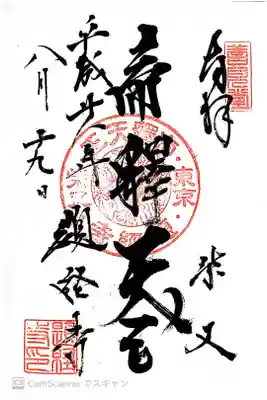 奉拝
柴又
帝釋天王
平成廿八年
八月廿九日
題経寺
東京
CamScanner でスキャン